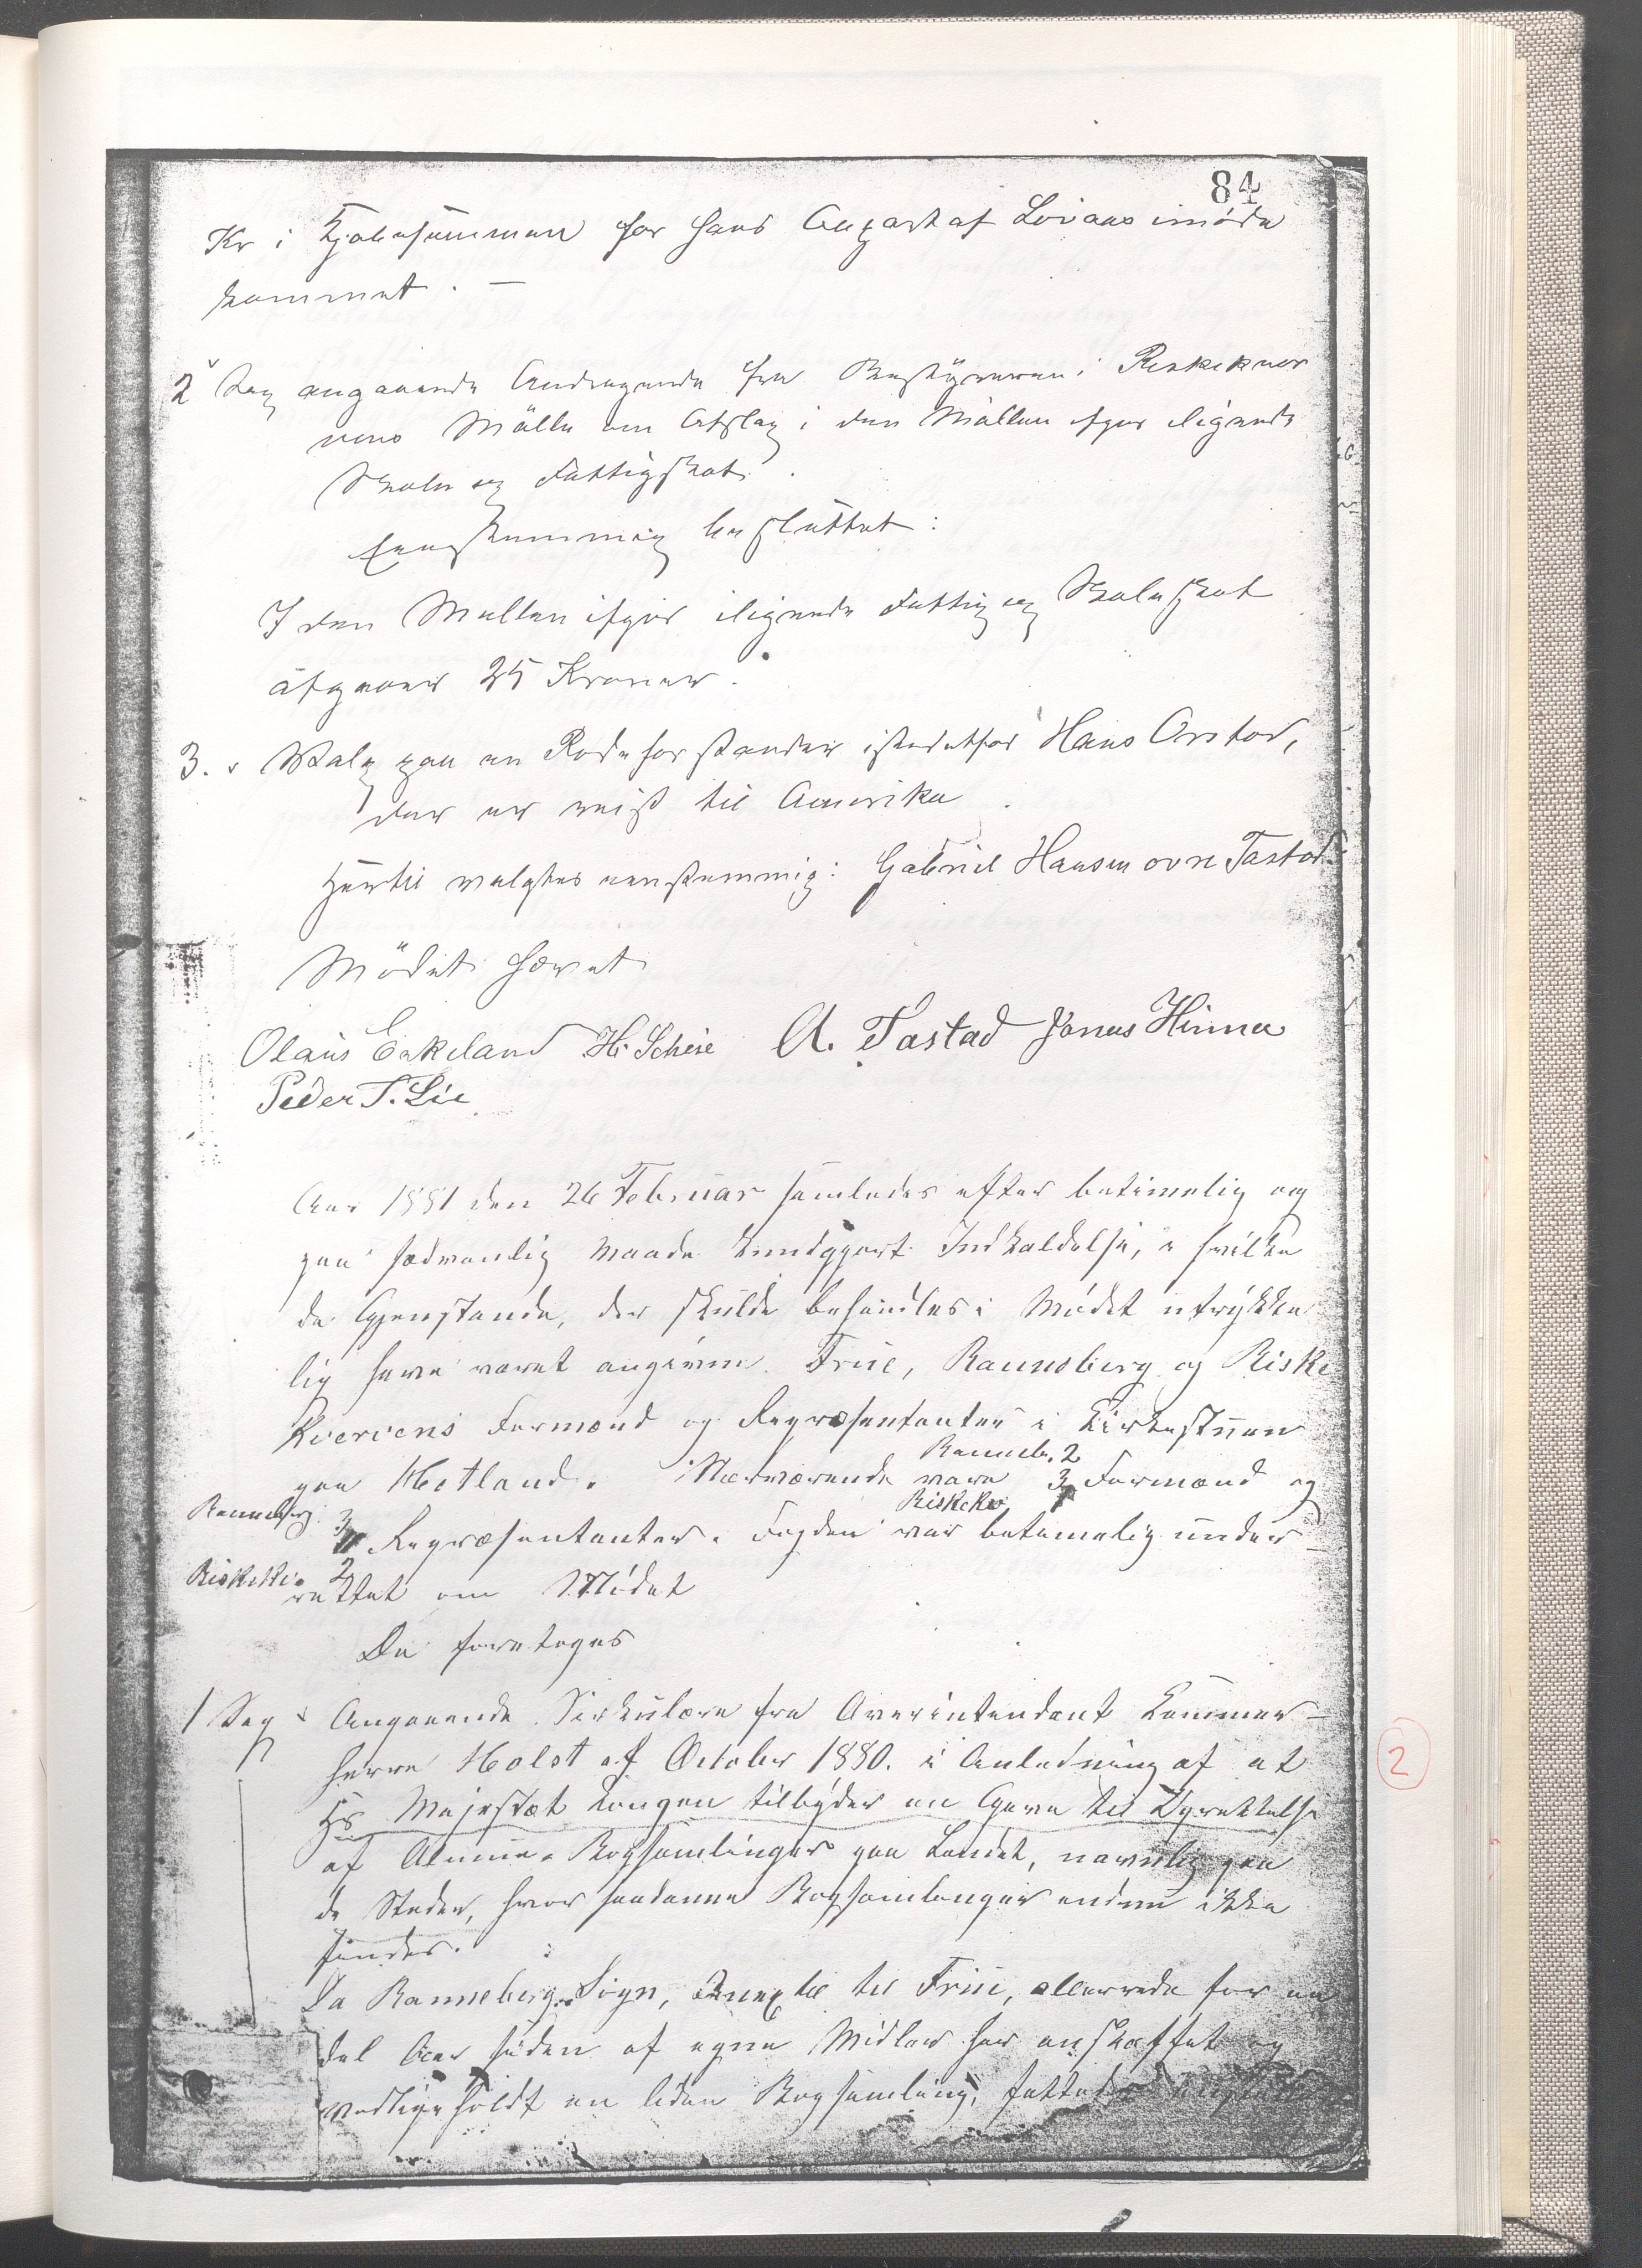 84
Kr i Kjøbesummen for hans Anpart af Lovaas imøde
kommet. —
2 Sag angaaende Andragende fra Bestyreren i Riskekver
vens Mølle om Afslag i den Møllen ifjor ilignede
Skole og Fattigskat.
Eenstemmig besluttet:
I den Møllen ifjor ilignede Fattig og Skoleskat
afgaaer 25 Kroner.
3. Valg paa en Rodeforstander istedetfor Hans Orstod,
der er reist til Amerika.
Hertil valgtes eenstemmig: Gabriel Hansen ovre Tastad
Mödet hævet
Olaus Eskeland H. Scheie A. Tastad Jonas Hinna
Peder T. Lie
Aar 1881 den 26 Februar samledes efter betimelig og
paa sædvanlig Maade kundgjort Indkaldelse, i hvilken
de Gjenstande, der skulde behandles i Mødet utrykke
lig have været angivne. Frue, Rannsberg og Riske
Kvervens Formænd og Repræsentanter i Kirkestuen
paa Hetland. Nærværende vare Ranneb. 2 3 Formænd og
Riskekv. 1
Ranneberg. 3 Repræsentanter. Fogden var betimelig under
Riskekv. 2 rettet om Mødet
Da foretoges
1 Sag Angaaende Sirkulære fra Overintendant Kammer-
herre Holst af October 1880. i Anledning af at
Hs Majestæt Kongen tilbyder en Gave til Oprettelse
af Almue-Bogsamlinger paa Landet, navnlig paa
de Steder, hvor saadanne Bogsamlinger endnu ikke
findes.
Da Ranneberg Sogn, Annex til Frue, allerede for en
del Aar siden af egne Midler har anskaffet og
vedligeholdt en liden Bogsamling, fattedes
2